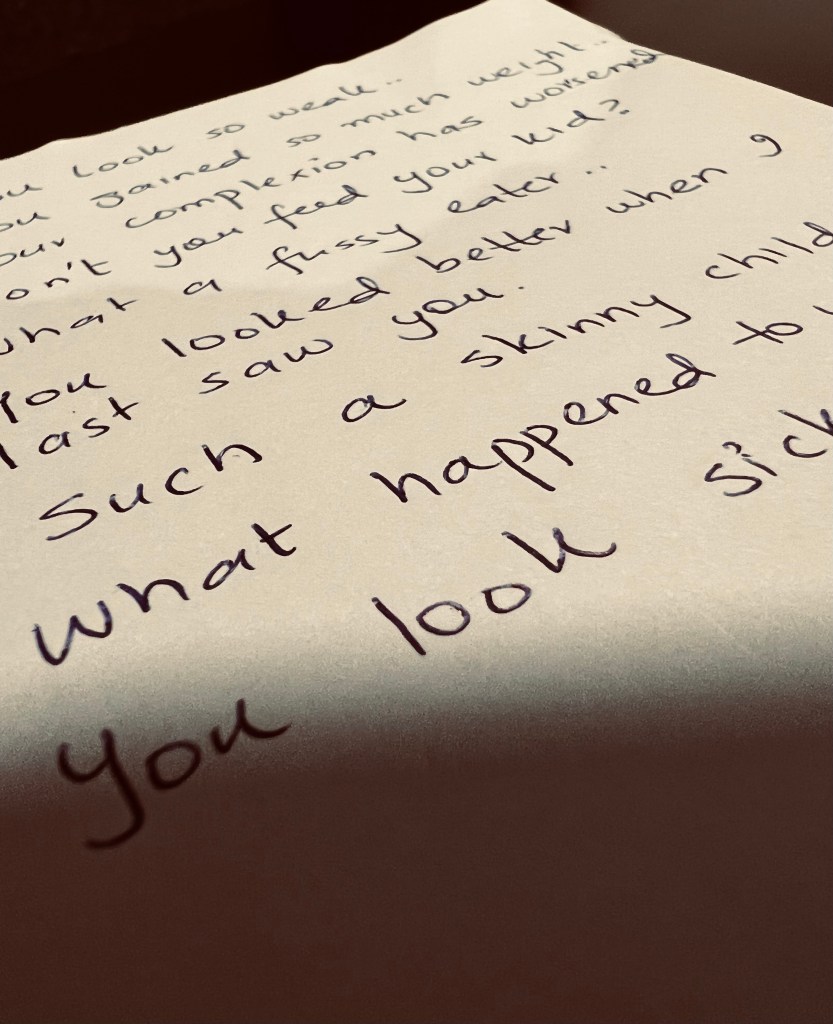 look so weak..
gained so much weight..
complexion has worsened
you feed your kid?
what a fussy eater..
You looked better when I
last saw you.
such a skinny child
what happened to
You look sick